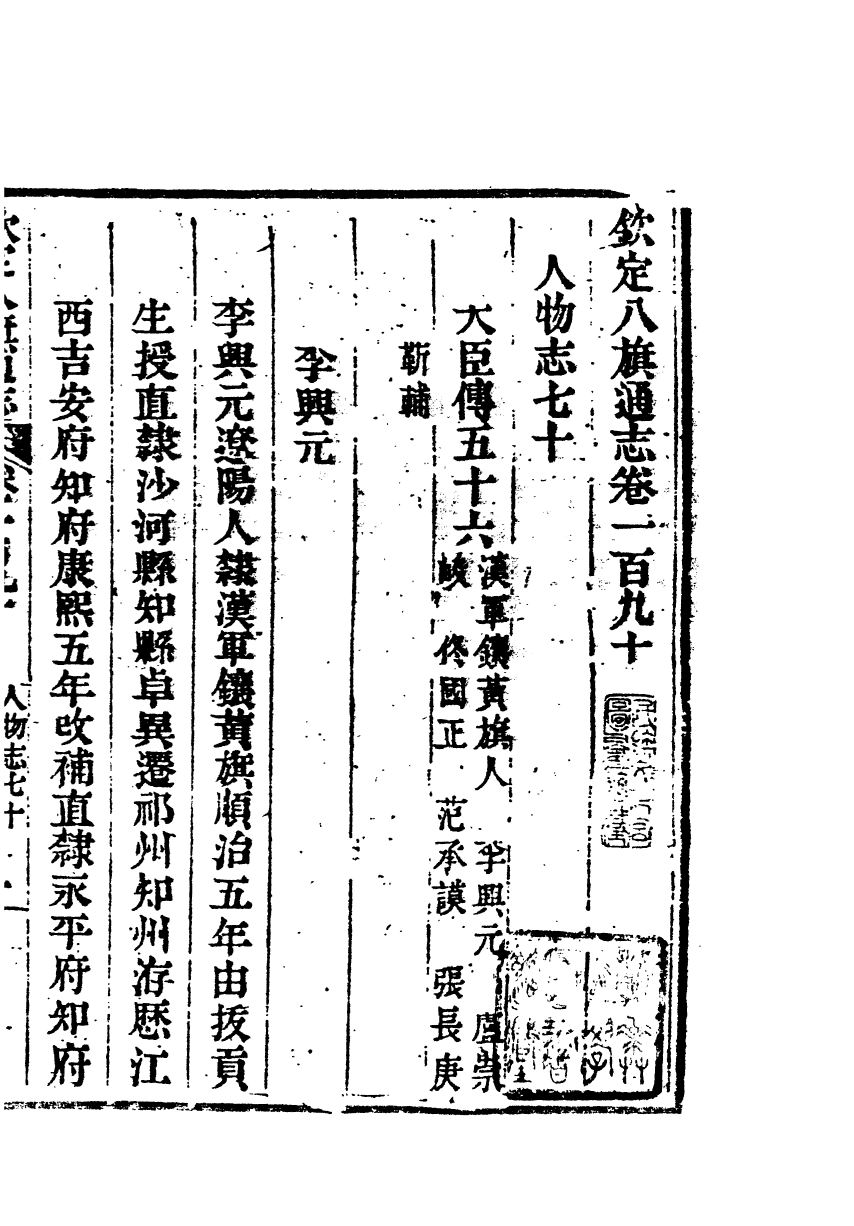 欽定八旗通志卷一百九十
人物志七十
大臣傳五十六 漢軍鑲黃旗人 李興元 盧崇
峻 佟國正 范承謨 張長庚
靳輔
李興元
李興元遼陽人隸漢軍鑲黃旗順治五年由拔貢
生授直隸沙河縣知縣卓異遷祁州知州洊歷江
西吉安府知府康熙五年改補直隸永平府知府
人物志七十